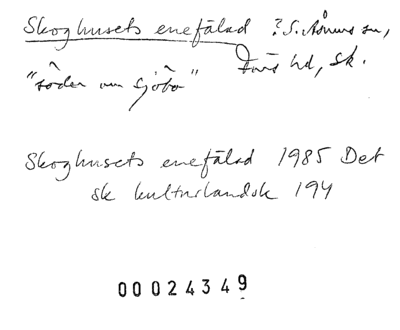 Skoghusets enefälad ? S. Åsums sn,
"söder om Sjöbo" Färs hd, Sk.
Skoghusets enefälad 1985 Det
sk kulturlandsk 194
00024349